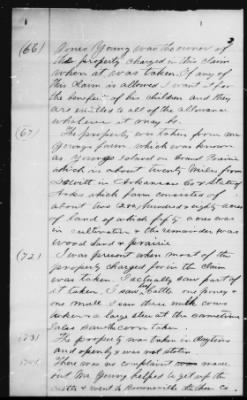 3
(66) Jones Young was the owner of
the property charged in this claim
when it was taken. If any of
this claim is allowed I want it for
the benefit of his children and they
are entitled to all of the allowance
whatever it may be.
(67) The property was taken from Mr
Youngs farm which was known
as Youngs Island on Grand Prairie
which is about twenty miles from
Dewitt in Arkansas Co State of
Arks which farm consisted of
about two hundred & eighty acres
of land of which fifty acres was
in cultivation & the remainder was
wood land & prairie
(72) I was present when most of the
property charged for in the claim
was taken. I actually saw part of
it taken. I saw cattle one poney &
one mule I saw three milk cows
taken & a large steer at the same time
I also saw the corn taken.
(73) The property was taken in daytime
and openly & was not stolen
There was no complaint made
out Mr Young helped to get up the
cattle & went to Brownsville